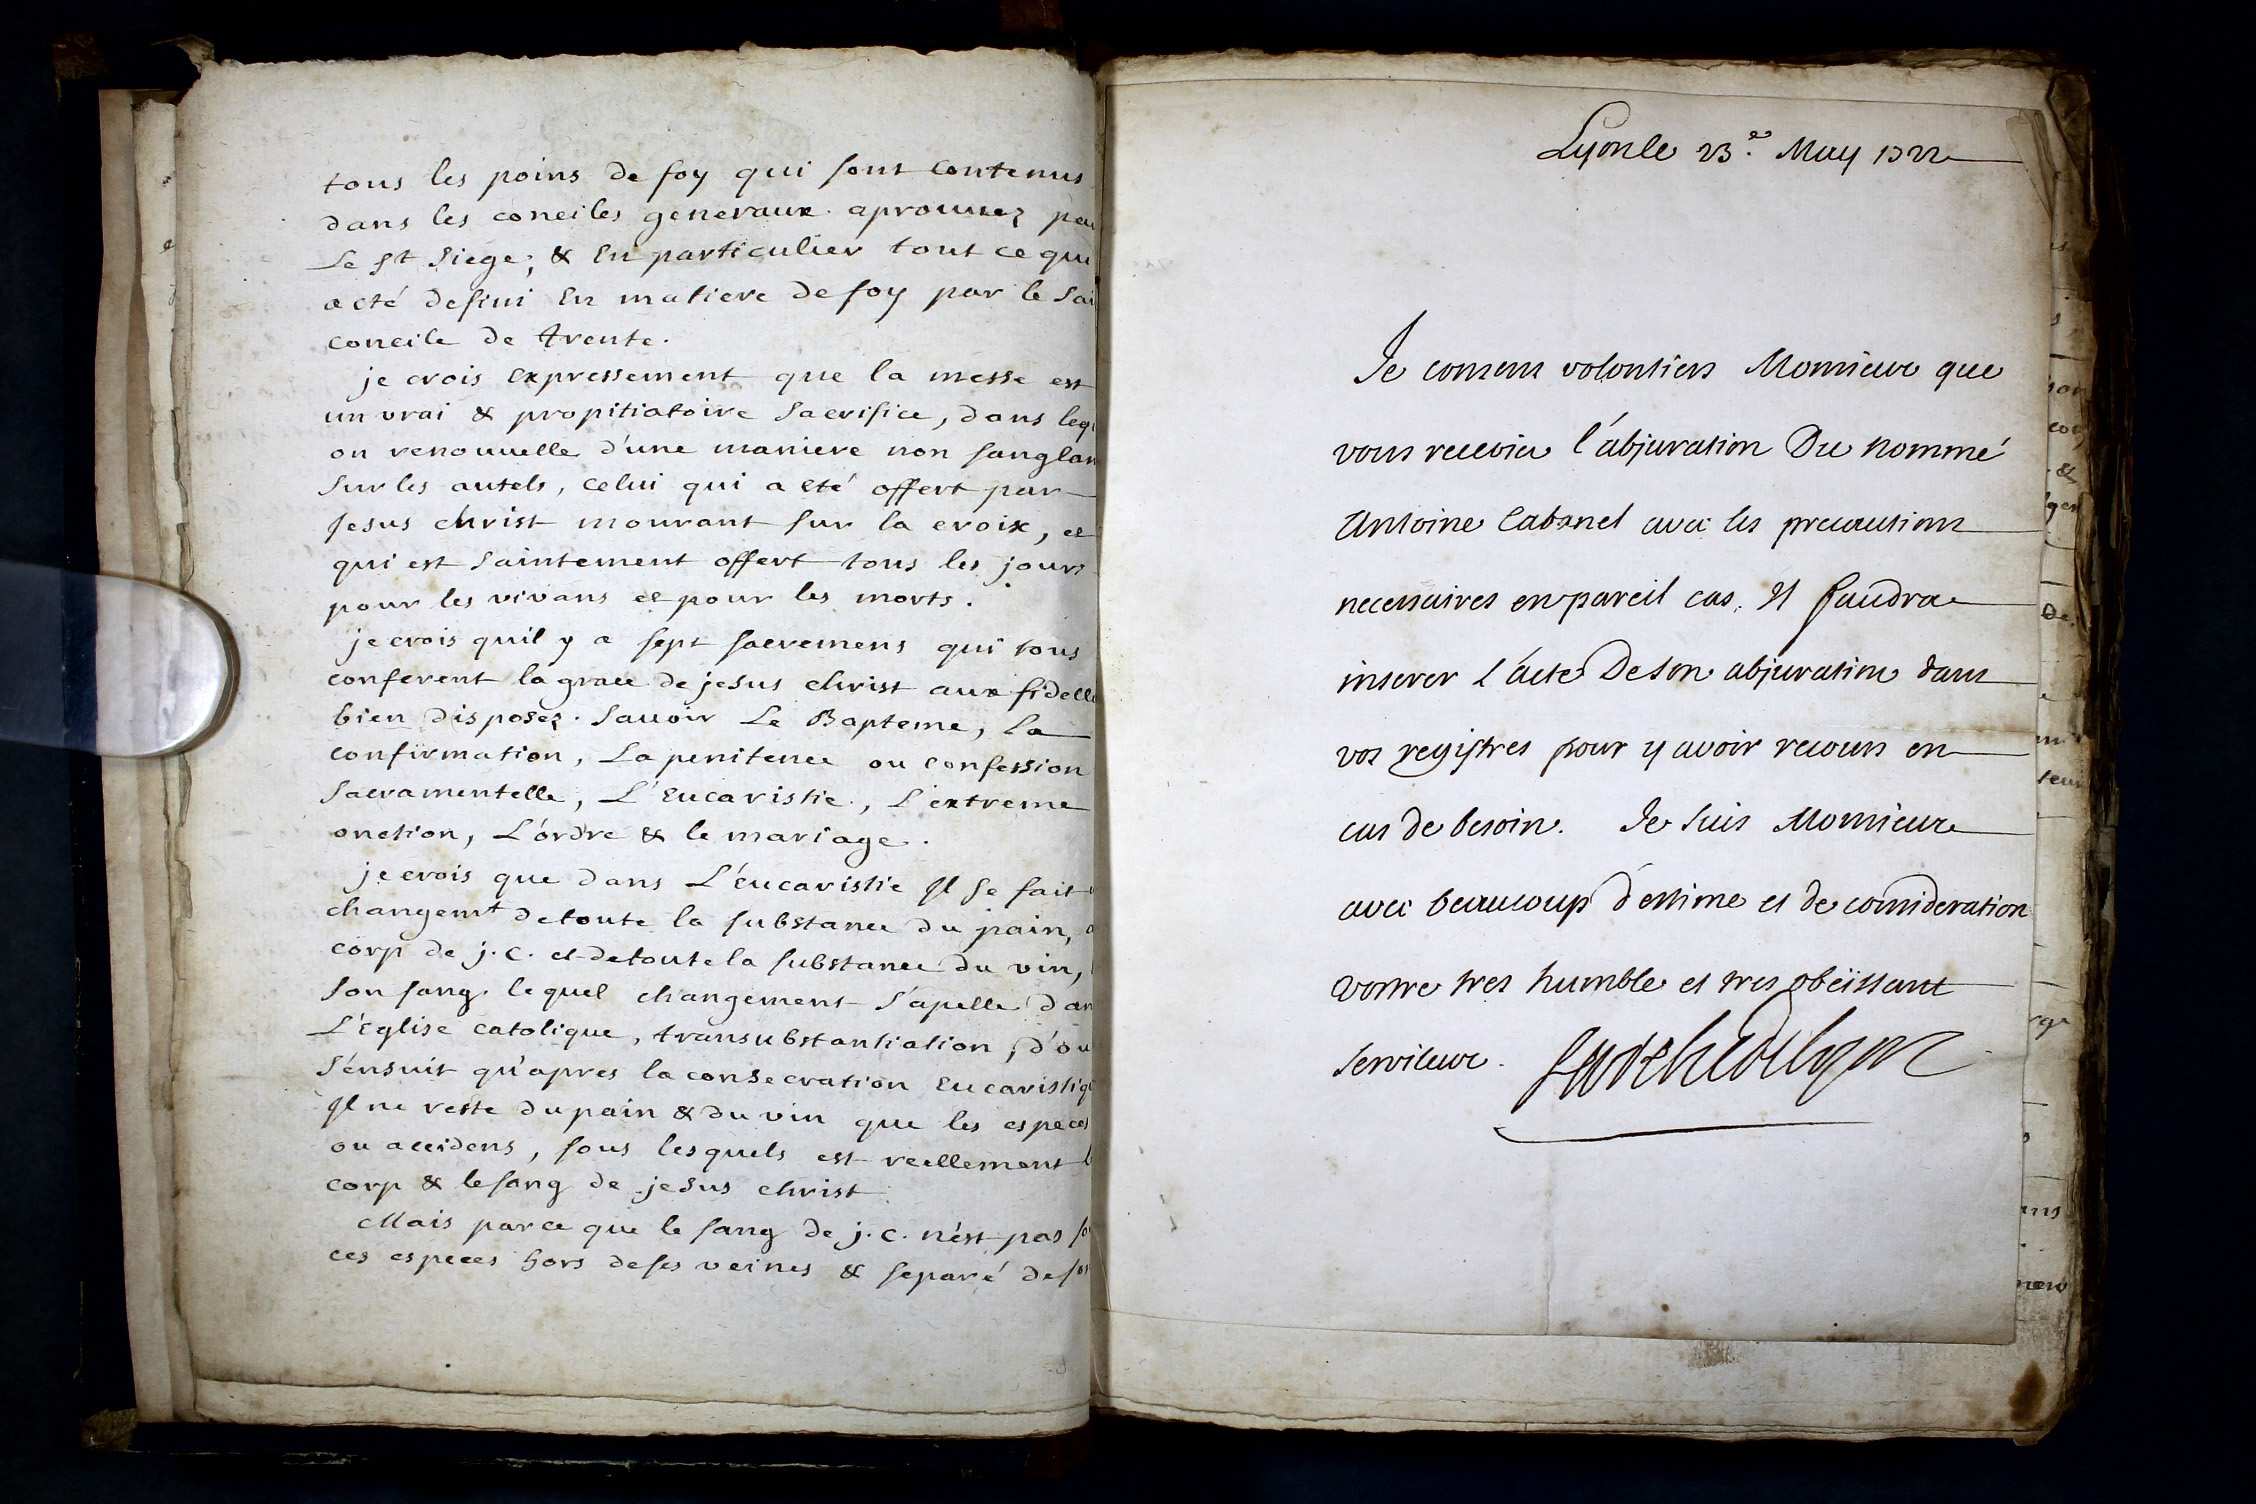 tous les poins de foy qui sont contenus
dans les conciles generaux aprouuez par
Le St Siege; & En particulier tout ce qui
a eté defini En matiere de foy par le sai
concile de trente.
je crois Expressement que la messe est
un vrai & propitiatoire sacrifice, dans leq
on renouuelle d'une maniere non sanglan
sur les autels, celui qui a eté offert par
Jesus christ mourant sur la croix, et
qui est saintement offert tous les jours
pour les vivans et pour les morts.
je crois quil y a sept sacremens qui tous
conferent la grace de jesus christ aux fidelle
bien disposez. savoir Le Bapteme, La
confirmation, La penitence ou confession
sacramentelle, L'Eucaristie, L'extreme
onction, L'ordre & le mariage.
je crois que dans L'Eucaristie Il se fait
changemt de toute la substance du pain,
corp de j.c. et de toute la substance du vin,
son sang. lequel changement s'apelle dan
L'Eglise catolique, transubstantiation, d'ou
s'ensuit qu'apres la consecration Eucaristiq
Il ne reste du pain & du vin que les especes
ou accidens, sous lesquels est reellement l
corp & le sang de jesus christ
Mais parce que le sang de j.c. n'est pas so
ces especes hors de ses veines & separé de son
Lyon le 23.e May 1722
Je consens volontiers Monsieur que
vous receviez l'abjuration Du nommé
Antoine Cabanel avec les precautions
necessaires en pareil cas. Il faudra
inserer l'acte De son abjuration dans
vos registres pour y avoir recours en
cas de besoin. Je suis Monsieur
avec beaucoup d'estime et de consideration
vostre tres humble et tres obeïssant
serviteur.